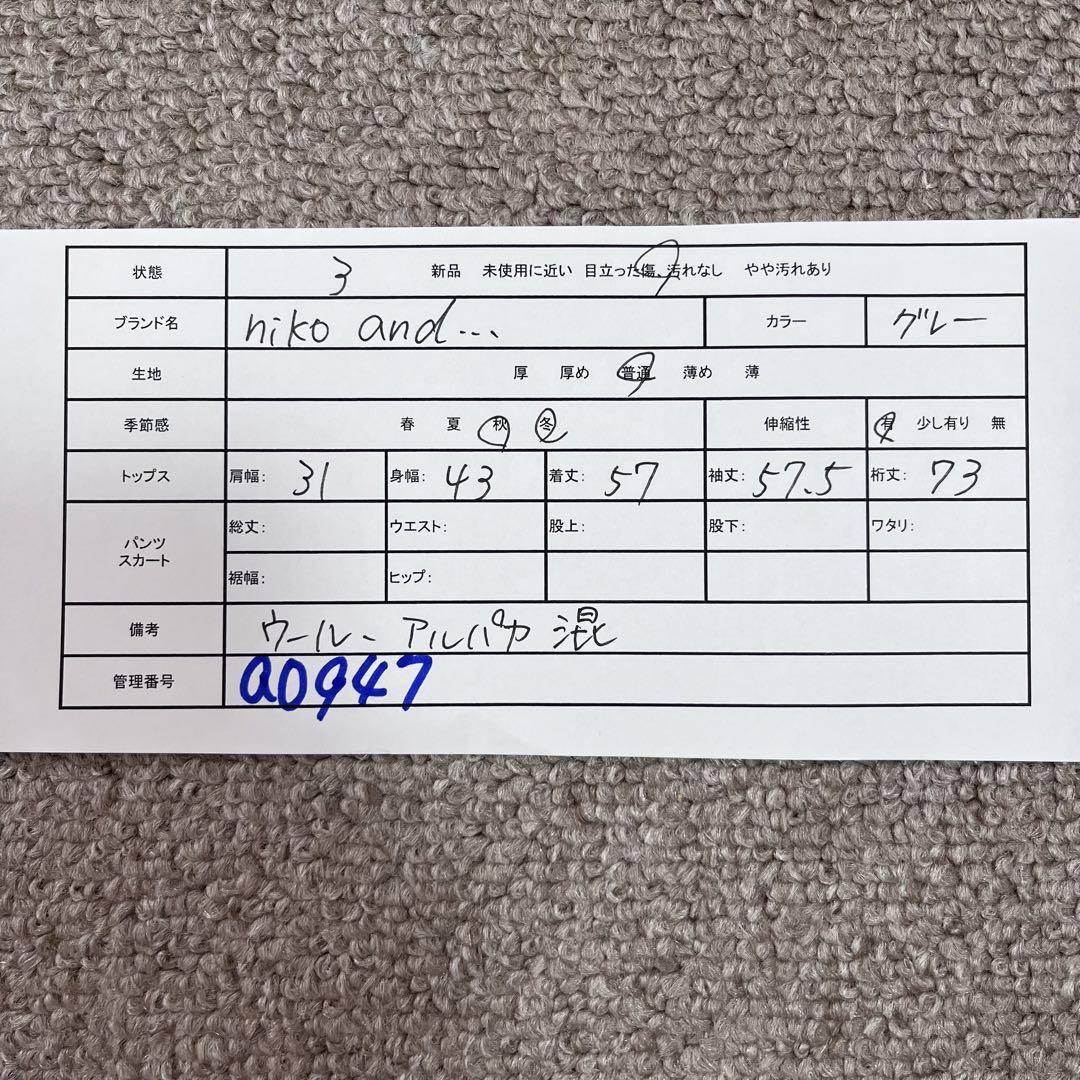 状態 3 新品 未使用に近い 目立った傷、汚れなし やや汚れあり
ブランド名 niko and... カラー グレー
生地 厚 厚め 普通 薄め 薄
季節感 春 夏 秋 冬 伸縮性 有 少し有り 無
トップス 肩幅: 31 身幅: 43 着丈: 57 袖丈: 57.5 裄丈: 73
パンツ
スカート
総丈: ウエスト: 股上: 股下: ワタリ:
裾幅: ヒップ:
備考 ウール- アルパカ 混
管理番号 a0947